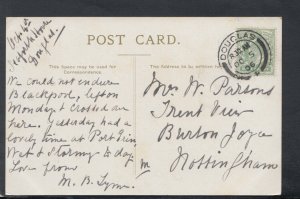 POST CARD.
This space may be used for
Correspondence.
The Address to be written here.
DOUGLAS
OC 5
05
We could not endure
Blackpool, left on
Monday & crossed over
here. Yesterday had a
lovely time at Port Erin
Wet & Stormy to day
Love from
M. B. Lyme.
Mrs. W. Parsons
Trent View
Burton Joyce
Nottingham